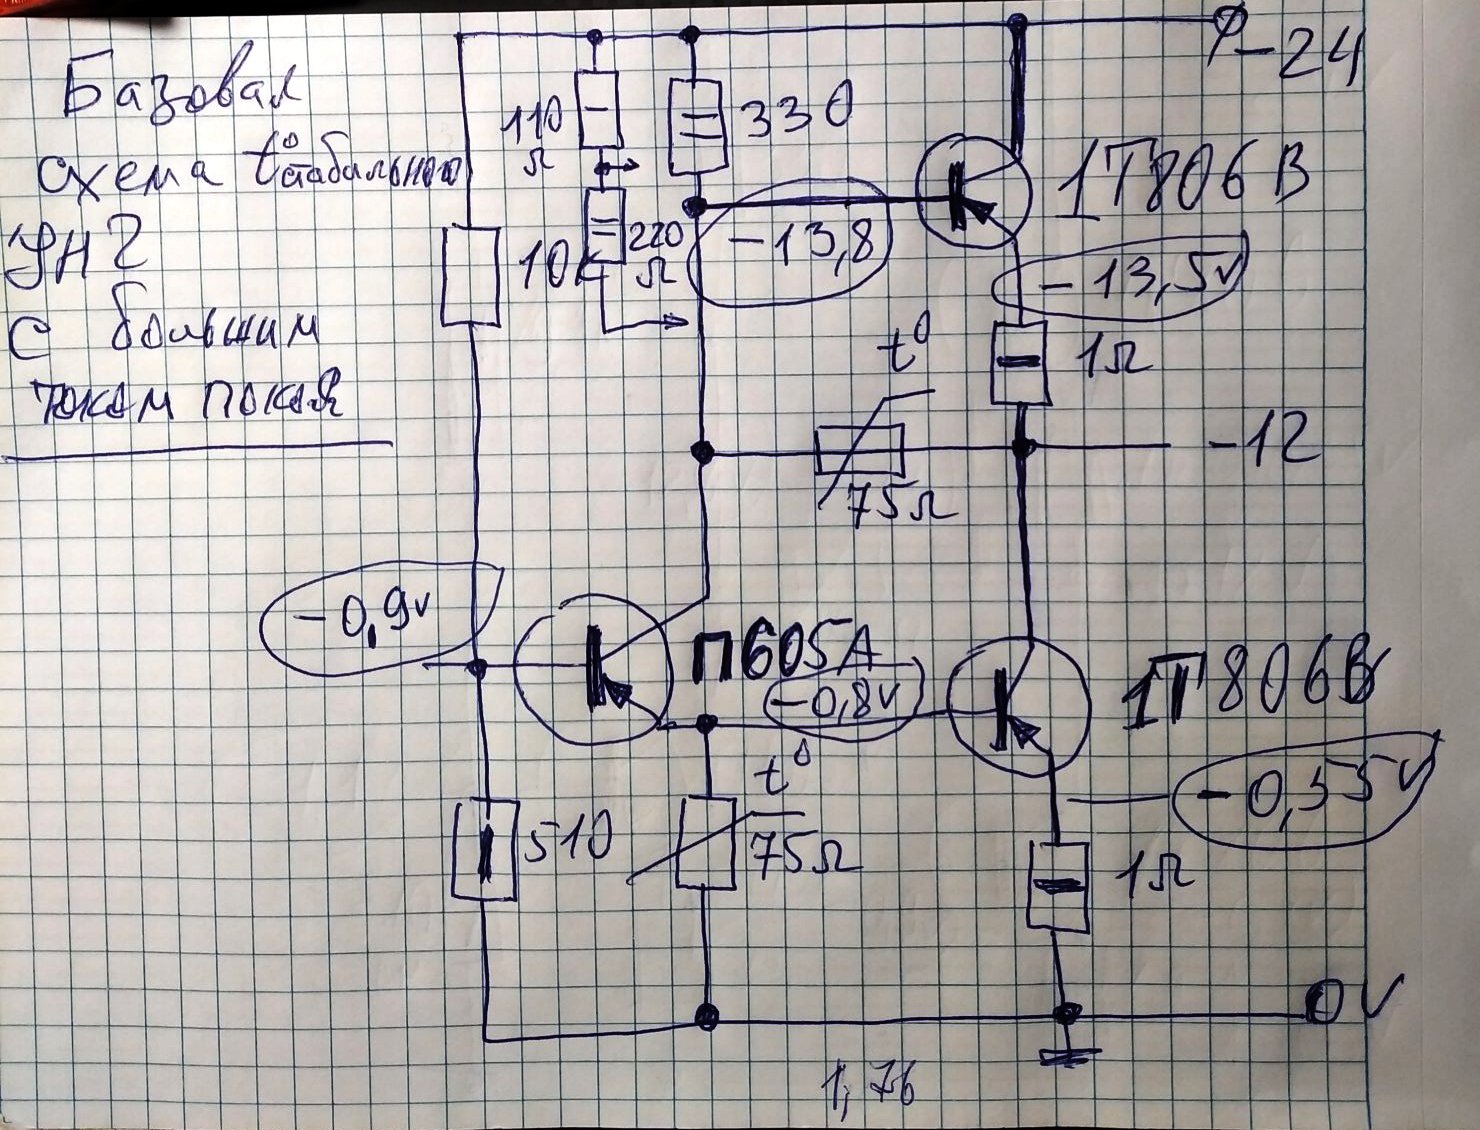 Базовая
схема t° стабильного
УНЧ
с большим
током покоя
-24
110
Ω
330
1Т806В
220
Ω
10к
-13,8
-13,5v
t°
1Ω
-12
75Ω
-0,9v
П605А
-0,8v
1Т806В
t°
-0,55v
510
75Ω
1Ω
0V
1,76